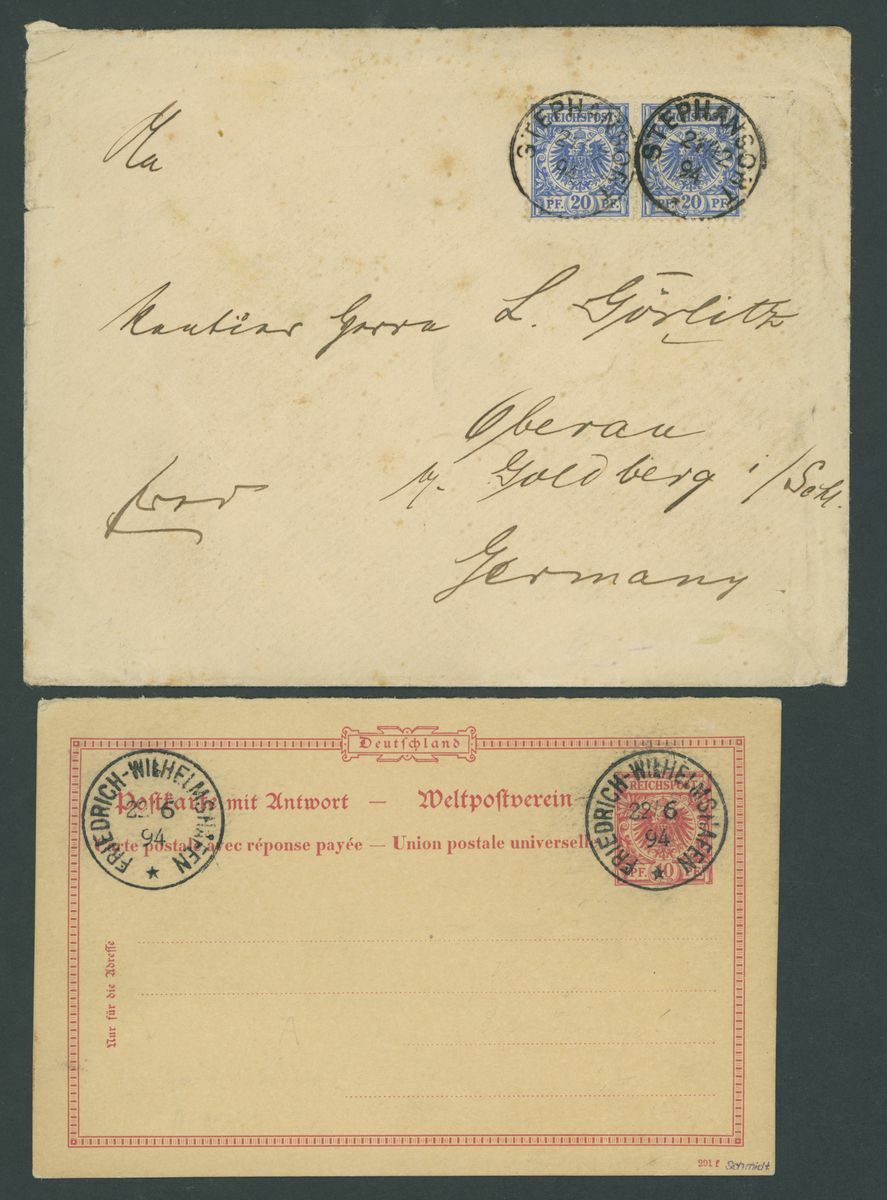 REICHSPOST REICHSPOST
STEPHANSORT STEPHANSORT
94 94
PF. 20 PF. PF. 20 PF.
Herrn L. Görlitz
Oberau
Goldberg i/Schl.
Germany
Deutschland
FRIEDRICH-WILHELMSHAFEN FRIEDRICH-WILHELMSHAFEN
22/6 22/6
94 94
REICHSPOST
PF. 10 PF.
Postkarte mit Antwort — Weltpostverein
Carte postale avec réponse payée — Union postale universelle
Nur für die Adresse
291 f Schmidt